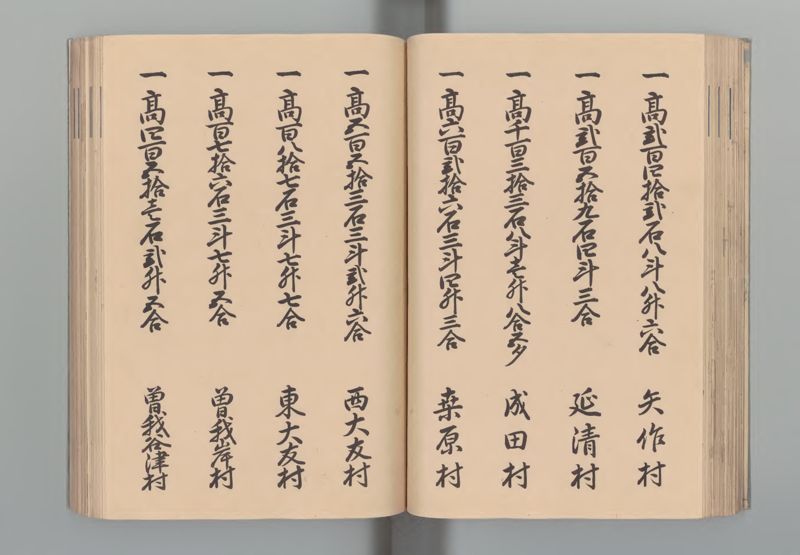 一高弐百四拾弐石八斗八升六合 矢作村
一高弐百五拾九石四斗三合 延清村
一高千百三拾三石八斗壱升八合五夕 成田村
一高六百弐拾六石三斗四升三合 桒原村
一高五百五拾三石三斗弐升六合 西大友村
一高百八拾七石三斗七升七合 東大友村
一高百七拾六石三斗七升五合 曽我岸村
一高四百五拾壱石弐升五合 曽我谷津村